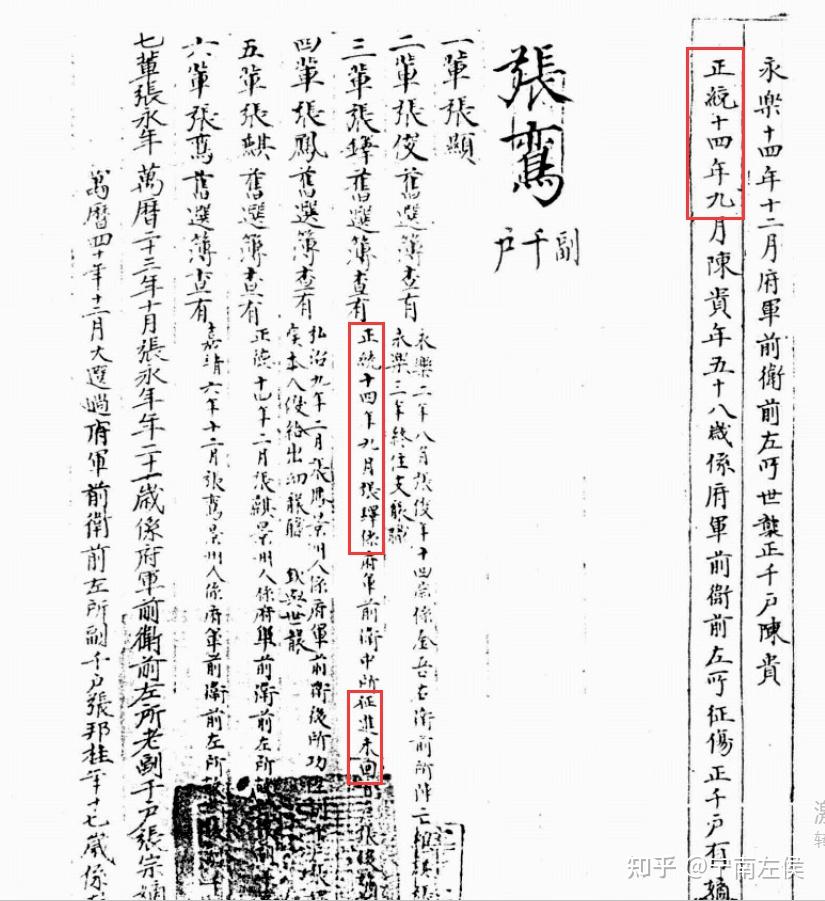 永樂十四年十二月府軍前衛前左所世襲正千戶陳貴
正統十四年九月陳貴年五十八歲係府軍前衛前左所征傷正千戶
張鸞
副千戶
一輩張顯
二輩張俊 舊選簿查有
永樂二年八月張俊年十四歲係金吾右衛前所陣亡
永樂三年終住支
三輩張鐸 舊選簿查有
正統十四年九月張鐸係府軍前衛中所征進未回
四輩張鳳 舊選簿查有
弘治九年二月張鳳景州人係府軍前衛後所
五輩張麒 舊選簿查有
正德十四年二月張麒景州人係府軍前衛前左所
六輩張鸞 舊選簿查有
嘉靖六年十二月張鸞景州人係府軍前衛前左所
七輩張永年 萬曆二十三年十月張永年年二十一歲係府軍前衛前左所老副千戶張宗嫡
萬曆四十年十二月大選過府軍前衛前左所副千戶張邦桂年十七歲係
知乎 @宁南左侯